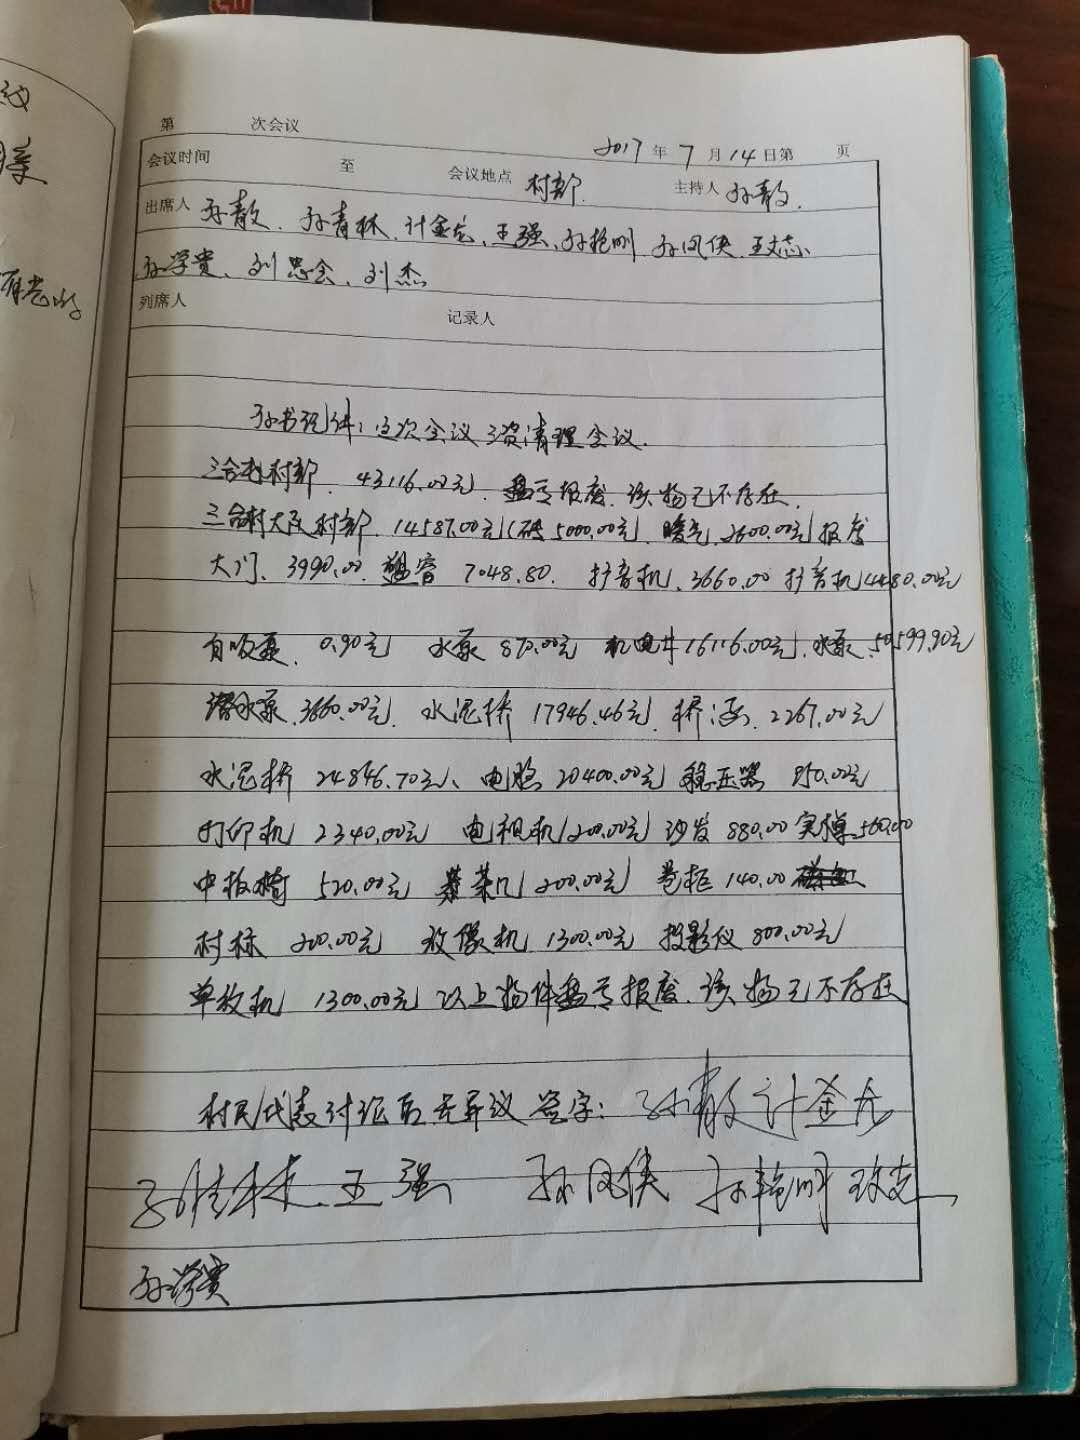 第 次会议
2017年7月14日第 页
会议时间 至 会议地点 村部 主持人 孙敖
出席人 孙敖、孙青林、计金龙、王强、孙艳明 孙凤侠 王志
孙学贵、刘思会、刘杰
列席人 记录人
孙书记讲：这次会议三资清理会议.
三合村村部 43116.00元 盘亏报废.该物已不存在.
三合村大队村部 14587.00元(砖5000.00元 暖气 2600.00元)报废
大门、3990.00 7048.80. 扩音机.3660.00 扩音机4480.00元
自吸泵、0.90元 水泵 870.00元 机电井16116.00元.水泵.50599.90元
潜水泵.3660.00元. 水泥桥 17946.46元 桥 2267.00元
水泥桥 24846.70元、电脑20400.00元 稳压器 850.00元
打印机 2340.00元 电视机1200.00元 沙发 880.00 560.00
中板椅 520.00元 茶几1200.00元 卷柜 140.00
村标 200.00元 放像机 1300.00元 投影仪 800.00元
单放机 1300.00元 以上物件盘亏报废.该物已不存在
村民代表讨论后无异议 签字: 孙敖 计金龙
孙青林.王强 孙凤侠 孙艳明 王志
孙学贵